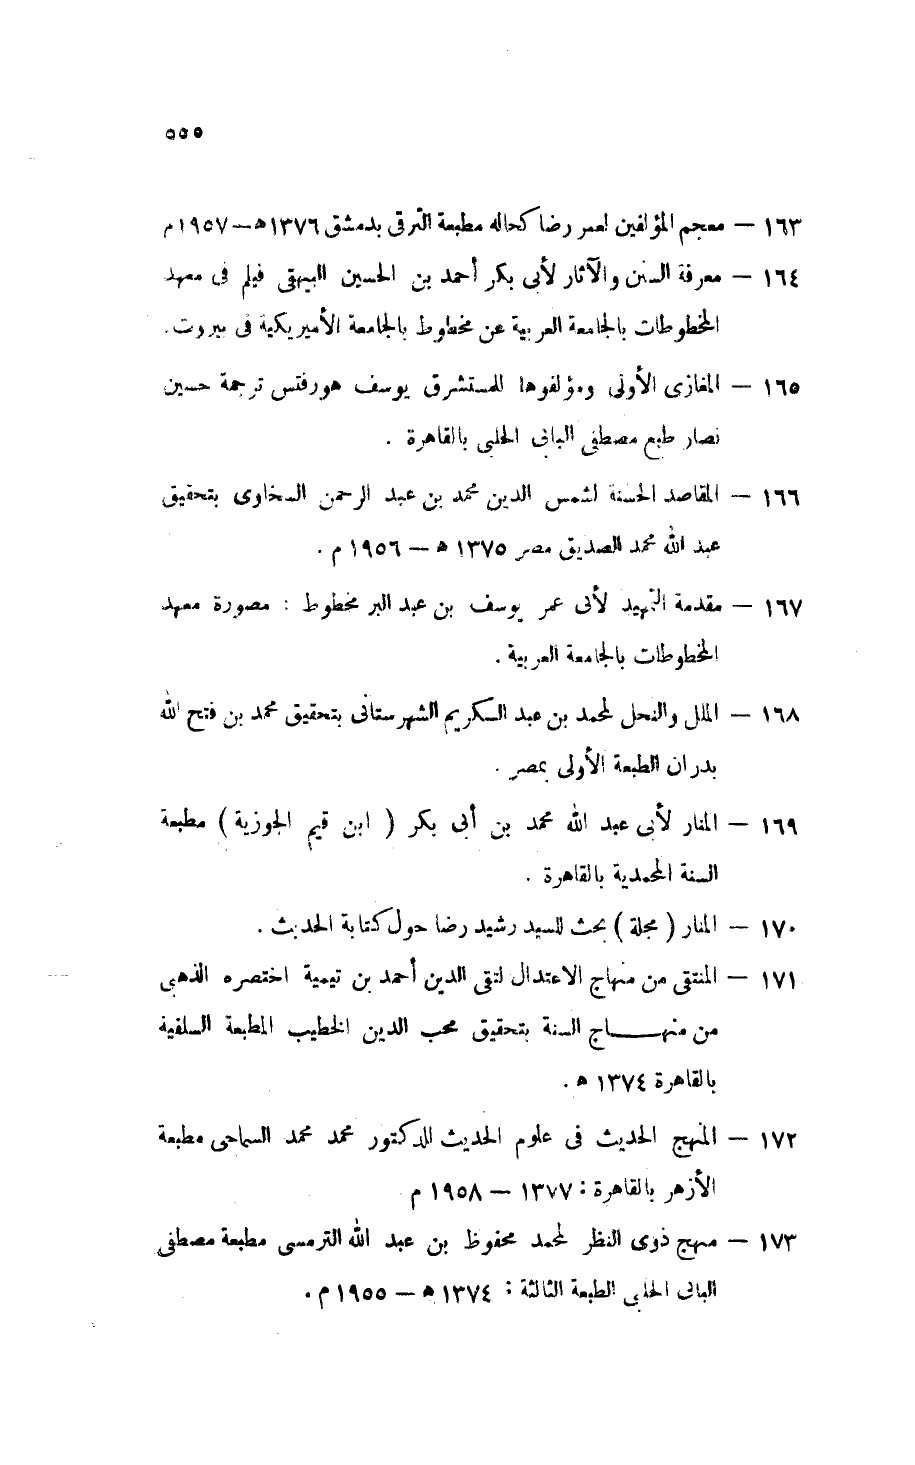 ٥٥٥
١٦٣ — معجم المؤلفين لعمر رضا كحاله مطبعة الترقى بدمشق ١٣٧٦ﻫ—١٩٥٧م
١٦٤ — معرفة السنن والآثار لأبى بكر أحمد بن الحسين البيهقى فيلم فى معهد
المخطوطات بالجامعة العربية عن مخطوط بالجامعة الأميريكية فى بيروت.
١٦٥ — المغازى الأولى ومؤلفوها للمستشرق يوسف هورفتس ترجمة حسين
نصار طبع مصطفى البابى الحلبى بالقاهرة .
١٦٦ — المقاصد الحسنة لشمس الدين محمد بن عبد الرحمن السخاوى بتحقيق
عبد الله محمد الصديق مصر ١٣٧٥ ﻫ — ١٩٥٦ م .
١٦٧ — مقدمة التمهيد لأبى عمر يوسف بن عبد البر مخطوط : مصورة معهد
المخطوطات بالجامعة العربية .
١٦٨ — الملل والنحل لمحمد بن عبد الكريم الشهرستانى بتحقيق محمد بن فتح الله
بدران الطبعة الأولى بمصر .
١٦٩ — المنار لأبى عبد الله محمد بن أبى بكر ( ابن قيم الجوزية ) مطبعة
السنة المحمدية بالقاهرة .
١٧٠ — المنار ( مجلة ) بحث للسيد رشيد رضا حول كتابة الحديث .
١٧١ — المنتقى من منهاج الاعتدال لتقى الدين أحمد بن تيمية اختصره الذهبى
من منهـــــاج السنة بتحقيق محب الدين الخطيب المطبعة السلفية
بالقاهرة ١٣٧٤ ﻫ .
١٧٢ — المنهج الحديث فى علوم الحديث للدكتور محمد محمد السماحى مطبعة
الأزهر بالقاهرة : ١٣٧٧ — ١٩٥٨ م
١٧٣ — منهج ذوى النظر لمحمد محفوظ بن عبد الله الترمسى مطبعة مصطفى
البابى الحلبى الطبعة الثالثة : ١٣٧٤ ﻫ — ١٩٥٥ م .